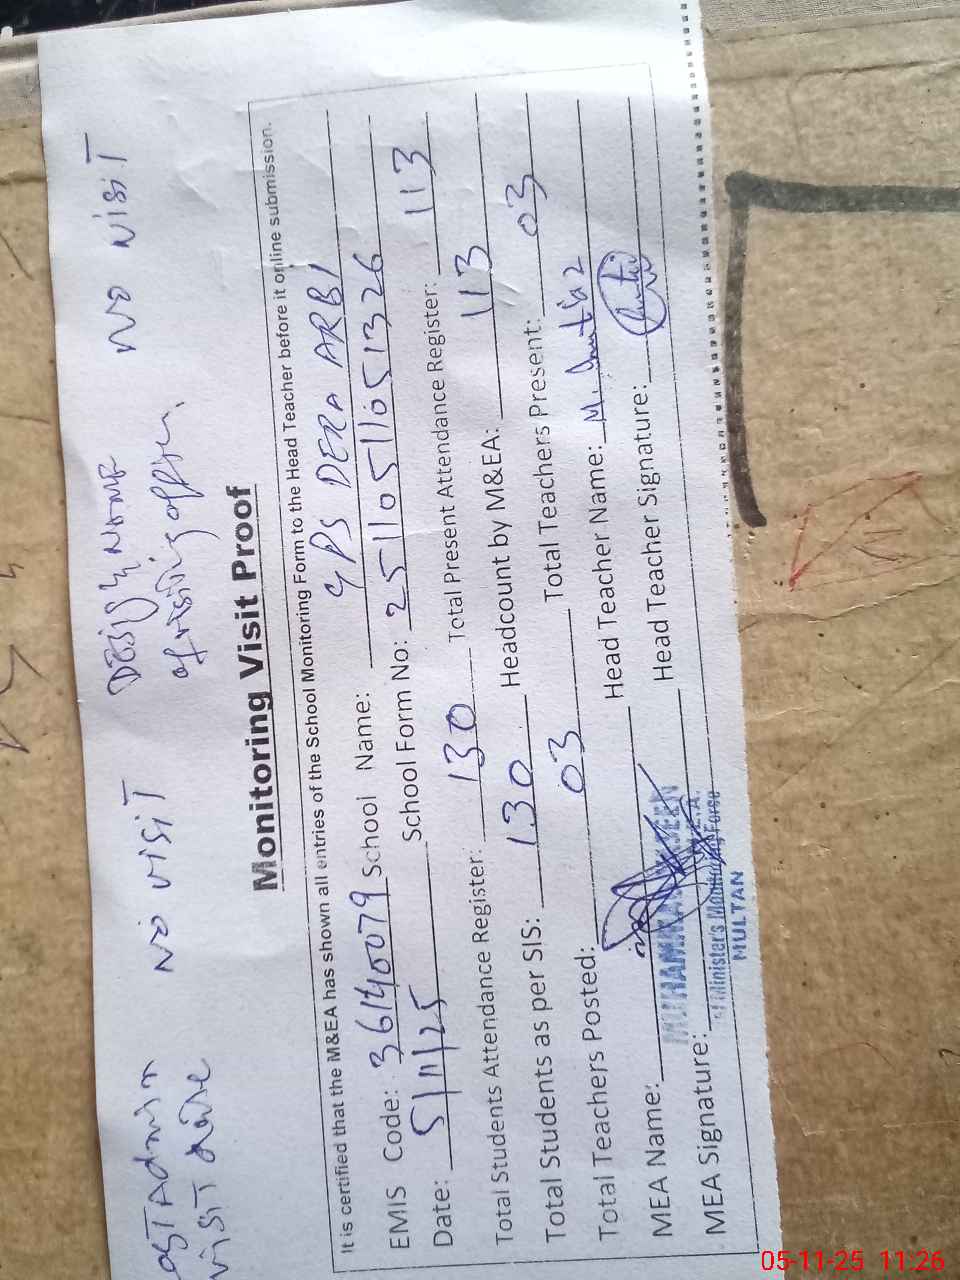 NO VISIT
NO VISIT
Monitoring Visit Proof
It is certified that the M&EA has shown all entries of the School Monitoring Form to the Head Teacher before it online submission.
EMIS Code: 36140079 School Name: GPS DERA ARBI
Date: 5/11/25 School Form No: 25110511051326
Total Students Attendance Register: 130 Total Present Attendance Register: 113
Total Students as per SIS: 130 Headcount by M&EA: 113
Total Teachers Posted: 03 Total Teachers Present: 03
MEA Name: Head Teacher Name: M.
MEA Signature: Head Teacher Signature:
MUHAMMAD
Minister's Monitoring Force
MULTAN
05-11-25 11:26